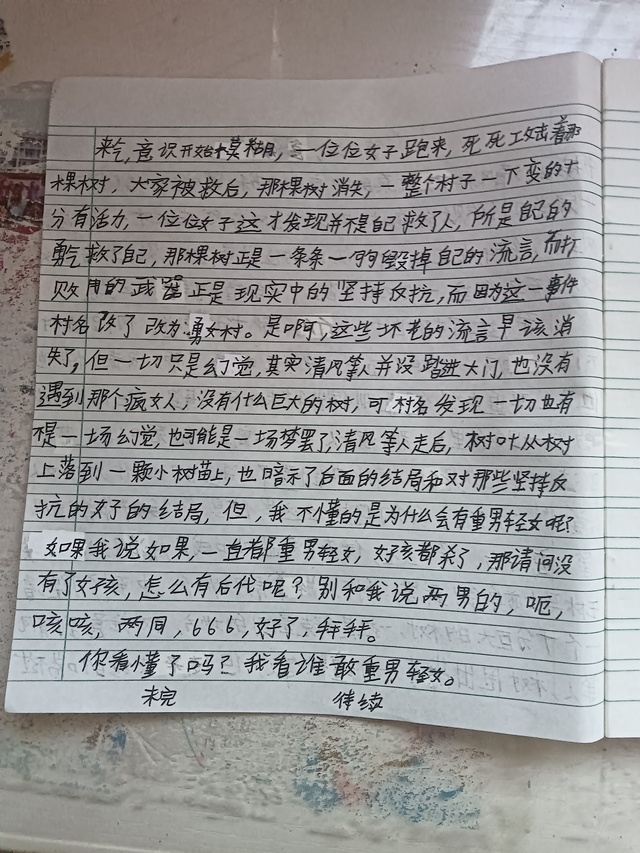 来气，意识开始模糊，一位位女子跑来，死死攻击着那
棵树，大家被救后，那棵树消失，一整个村子一下变的十
分有活力，一位位女子这才发现并不是自己救了人，所是自己的
勇气救了自己，那棵树正是一条条一句句毁掉自己的流言，而打
败用的武器正是现实中的坚持反抗，而因为这一事件
村名改了改为:勇女村。是啊，这些坏老的流言早该消
失了，但一切只是幻觉，其实清风等人并没踏进大门，也没有
遇到那个疯女人，没有什么巨大的树，可村名发现一切也有
是一场幻觉，也可能是一场梦罢了，清风等人走后，树叶从树
上落到一颗小树苗上，也暗示了后面的结局和对那些坚持反
抗的女子的结局，但，我不懂的是为什么会有重男轻女呢？
如果我说如果，一直都重男轻女，女孩都杀了，那请问没
有了女孩，怎么有后代呢？别和我说两男的，呃，
咳咳，两同，666，好了，拜拜。
你看懂了吗？我看谁敢重男轻女。
未完 待续